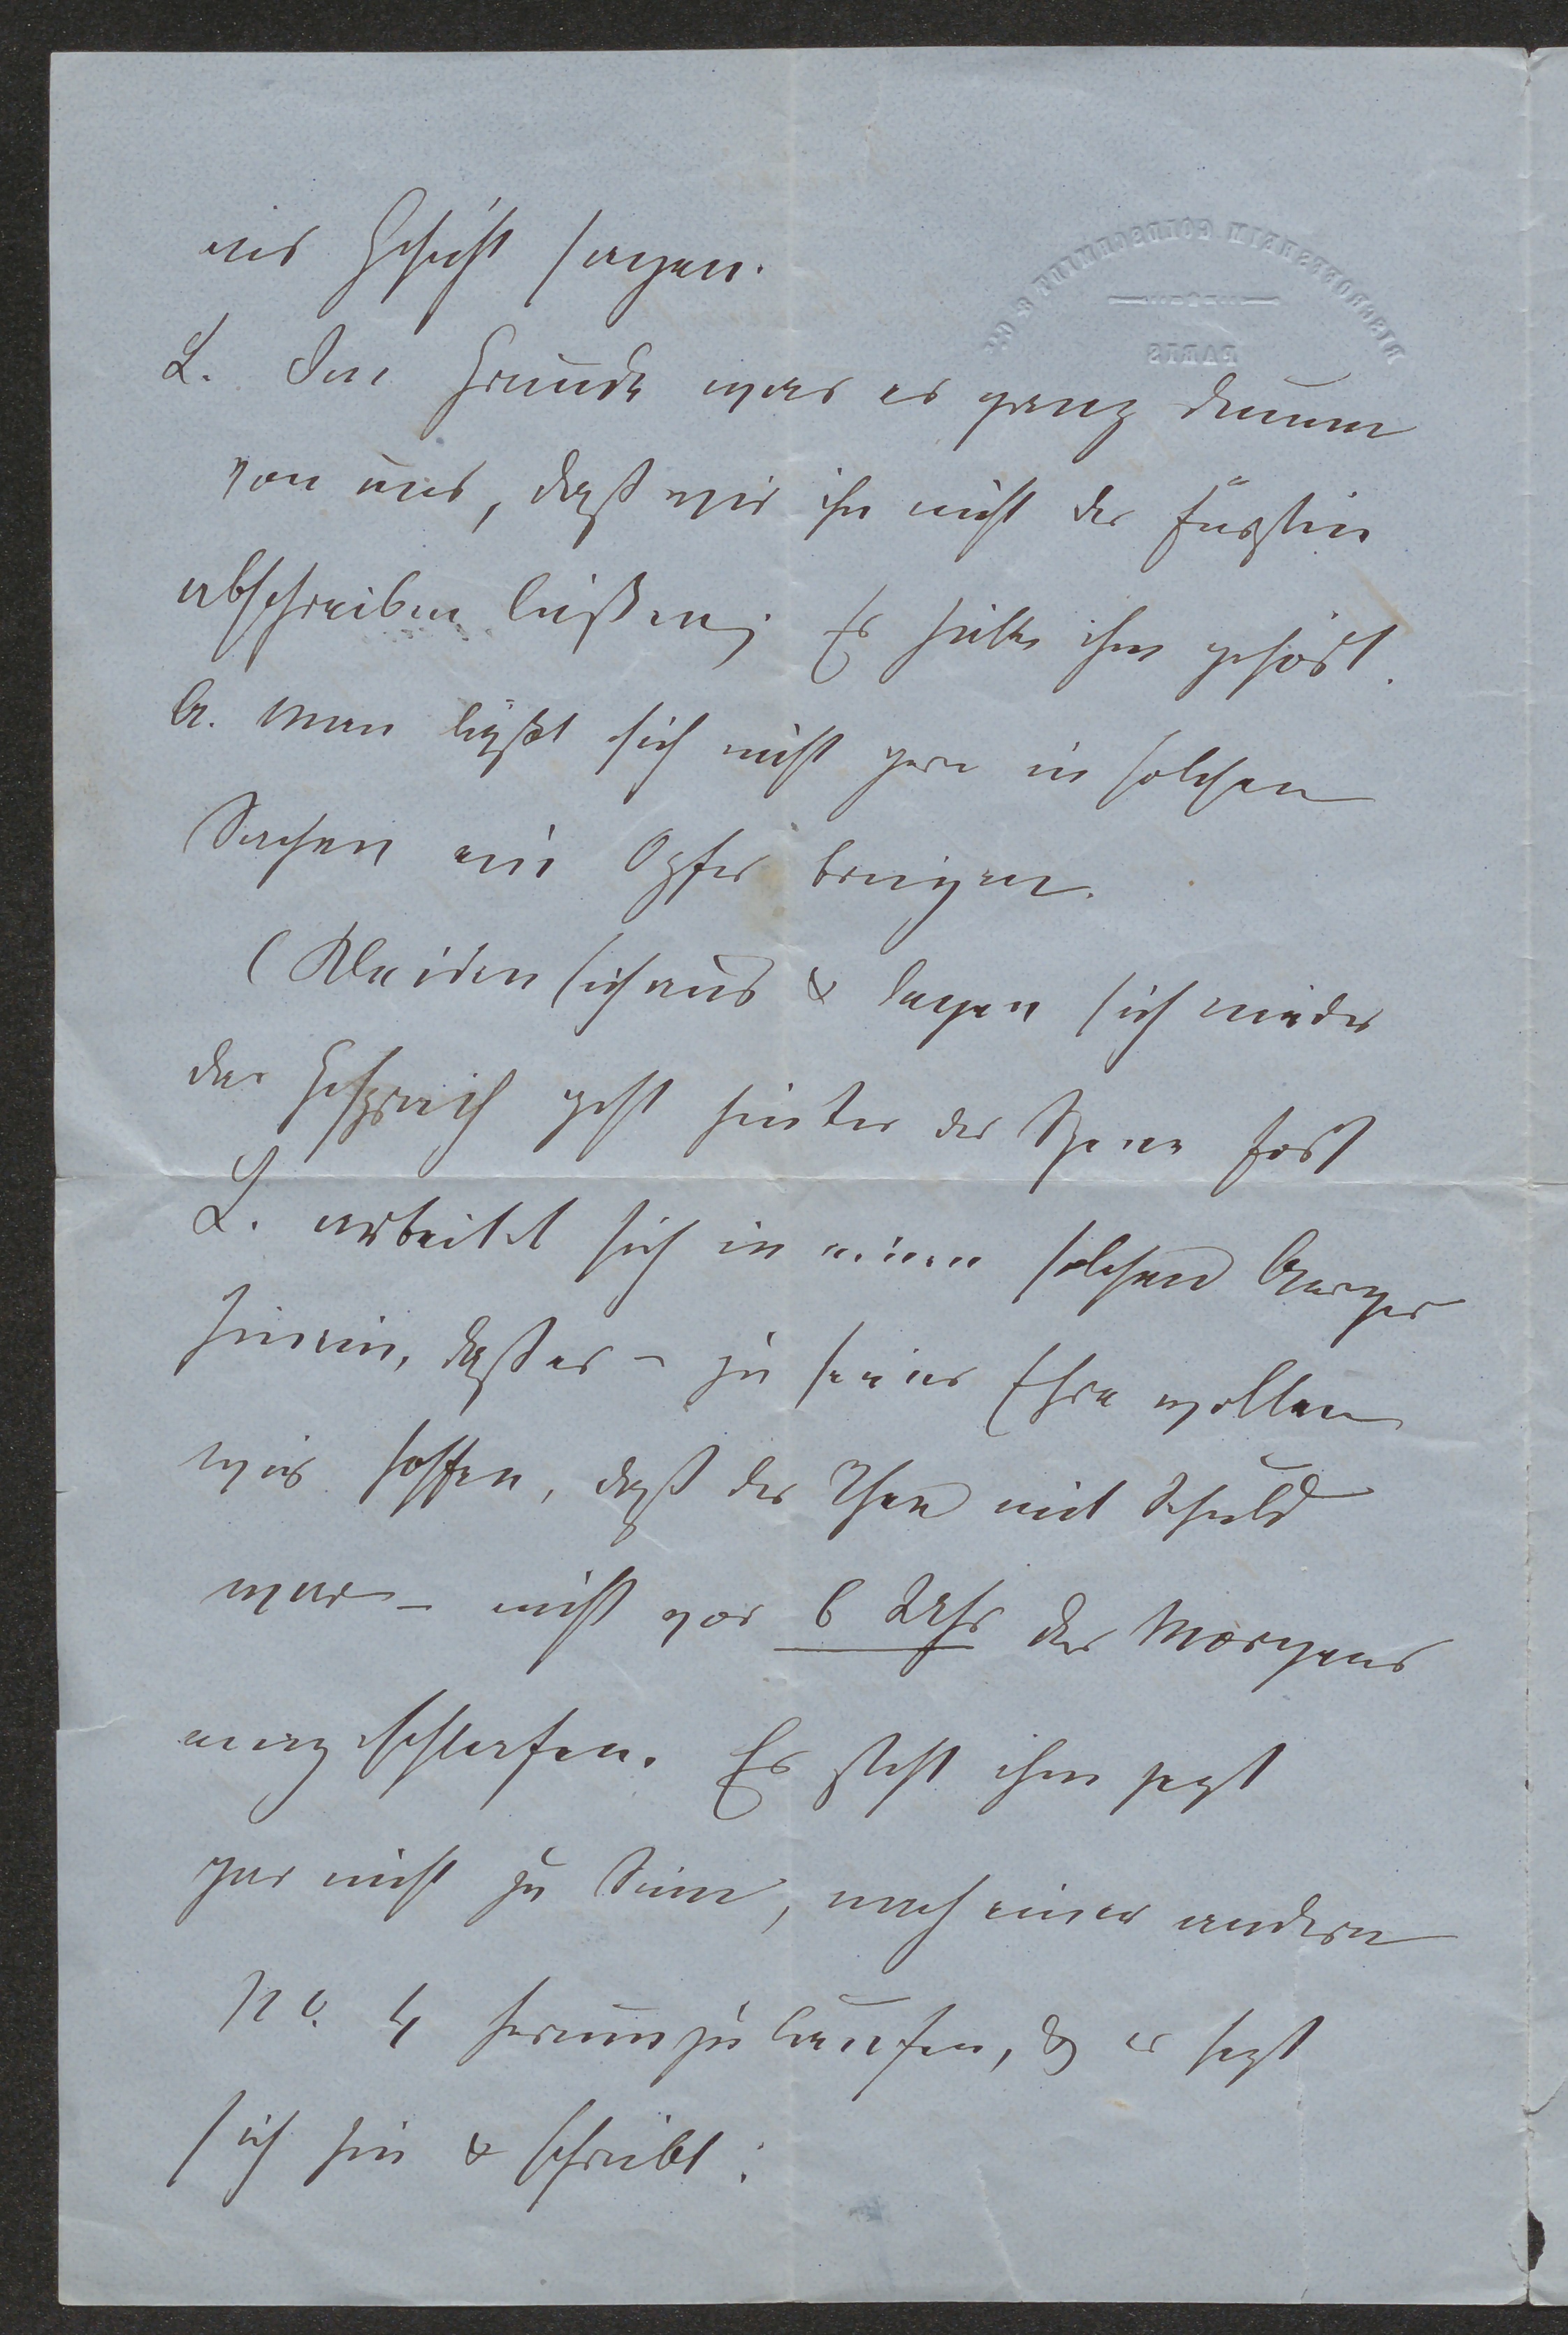 ins Gesicht sagen.
L. Im Grunde war es ganz dumm
von uns, daß wir ihn nicht der Fürstin
abschreiben ließen; Es hätte ihm gehört.
A. Man läßt sich nicht gern in solchen
Sachen ein Opfer bringen.
(Kleiden sich aus & legen sich nieder
das Gespräch geht hinter der Szene fort
L. arbeitet sich in einen solchen Aerger
hinein, daß er – zu seiner Ehre wollen
wir hoffen, daß der Thee mit Schuld
war – nicht vor 6 Uhr des Morgens
einzuschlafen. Es steht ihm jezt
gar nicht zu Sinn, nach einer andern
No. 4 herumzulaufen, & er sezt
sich hin & schreibt:
RIESROERSHEIM GOLDSCHMIDT & Co
PARIS